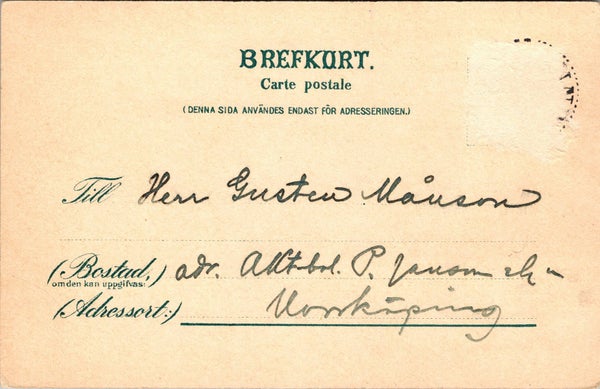 BREFKORT.
Carte postale
(DENNA SIDA ANVÄNDES ENDAST FÖR ADRESSERINGEN.)
Till Herr Gusten Månson
(Bostad,) adr. Aktbol. P. Janson
om den kan uppgifvas:
(Adressort:) Norrköping